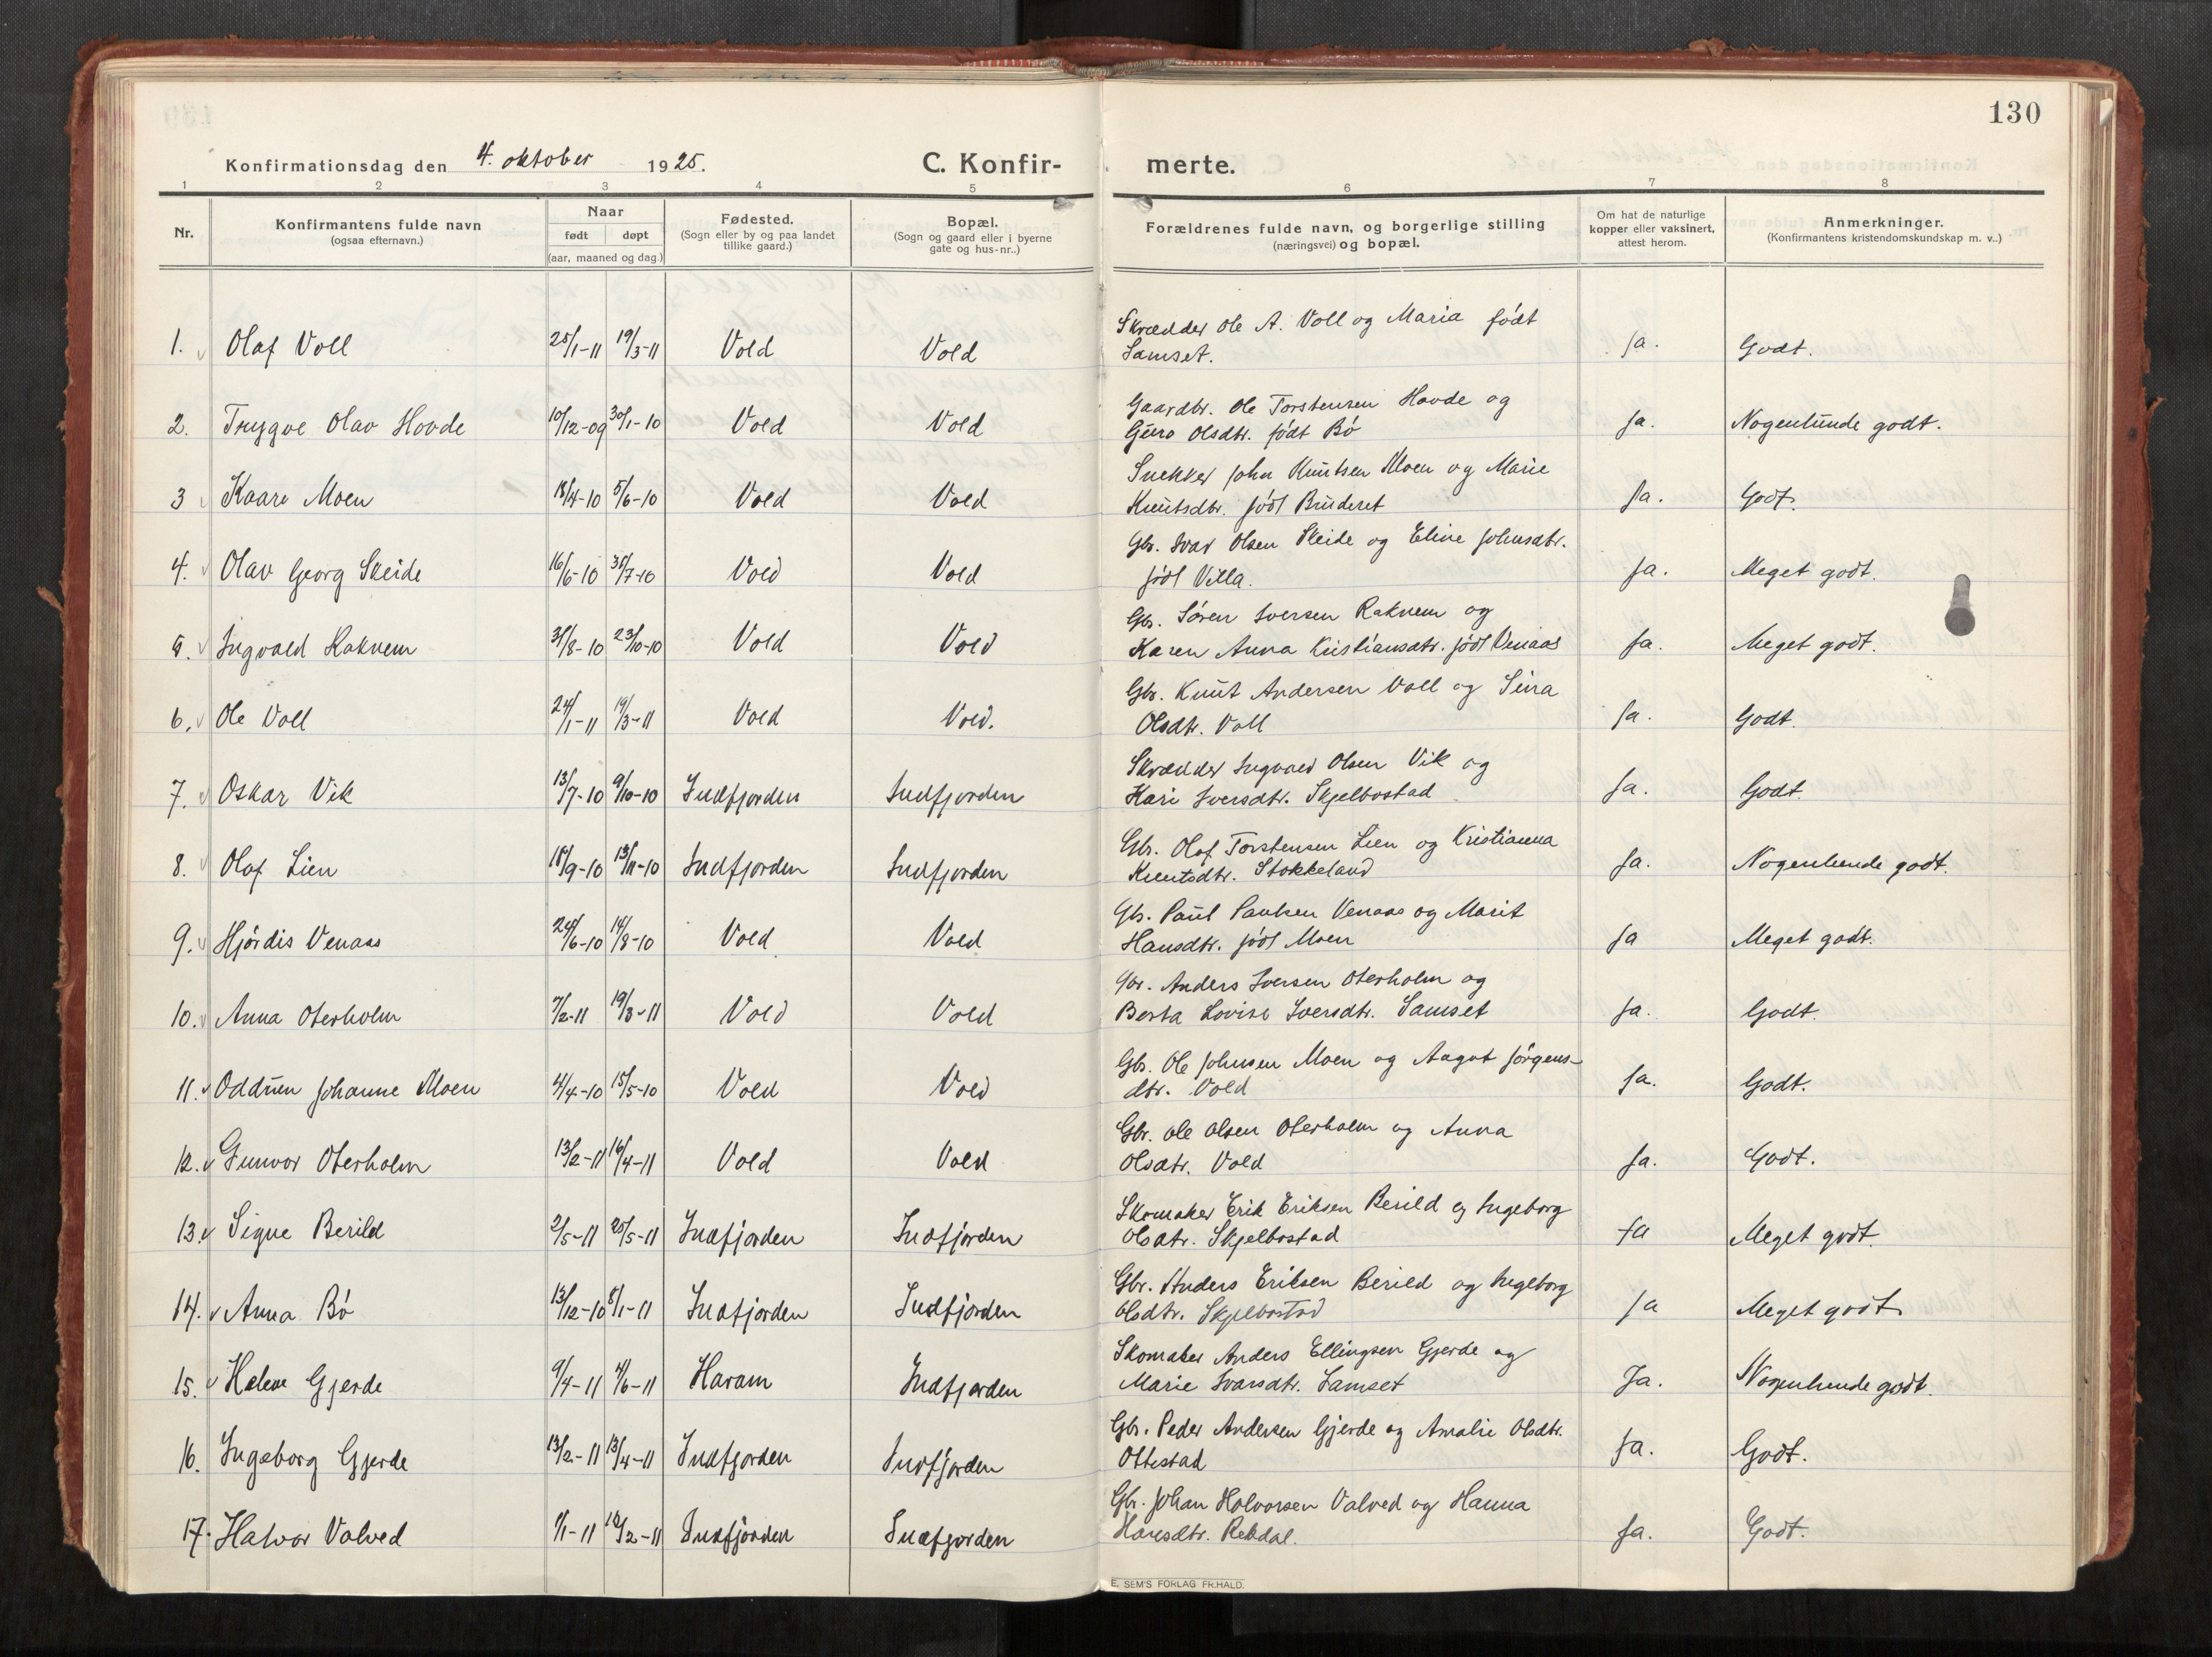 130
Konfirmationsdag den 4. oktober 1925. C. Konfir- merte.
1 2 3 4 5 6 7 8
Nr. Konfirmantens fulde navn (ogsaa efternavn.) Naar født døpt (aar, maaned og dag.) Fødested. (Sogn eller by og paa landet tillike gaard.) Bopæl. (Sogn og gaard eller i byerne gate og hus-nr..) Forældrenes fulde navn, og borgerlige stilling (næringsvei) og bopæl. Om hat de naturlige kopper eller vaksinert, attest herom. Anmerkninger. (Konfirmantens kristendomskundskap m. v..)
Skrædder Ole A. Voll og Maria født
1. Olaf Voll 25/1-11 19/3-11 Vold Vold Samset. Ja. Godt.
Gaardbr. Ole Torstensen Hovde og
2. Trygve Olav Hovde 10/12-09 30/1-10 Vold Vold Guro Olsdtr. født Bø Ja. Nogenlunde godt.
Snekker John Knutsen Moen og Marie
3 Kaare Moen 18/4-10 5/6-10 Vold Vold Knutsdtr. født Bruderet Ja. Godt.
Gbr. Ivar Olsen Skeide og Eline Johnsdtr.
4. Olav Georg Skeide 16/6-10 31/7-10 Vold Vold født Villa. Ja. Meget godt.
Gbr. Søren Iversen Raknem og
5. Ingvald Raknem 31/8-10 23/10-10 Vold Vold Karen Anna Kristiansdtr. født Venaas Ja. Meget godt.
Gbr. Knut Andersen Voll og Sina
6. Ole Voll 24/1-11 19/3-11 Vold Vold. Olsdtr. Voll Ja. Godt.
Skrædder Ingvald Olsen Vik og
7. Oskar Vik 13/7-10 9/10-10 Indfjorden Indfjorden Kari Iversdtr. Skjelbostad Ja. Godt.
Gbr. Olaf Torstensen Lien og Kristianna
8. Olaf Lien 18/9-10 13/11-10 Indfjorden Indfjorden Knutsdtr. Stokkeland Ja. Nogenlunde godt.
Gb. Paul Paulsen Venaas og Marit
9. Hjørdis Venaas 24/6-10 14/8-10 Vold Vold Hansdtr. født Moen Ja Meget godt.
Gbr. Anders Iversen Oterholm og
10. Anna Oterholm 7/2-11 19/3-11 Vold Vold Berta Lovise Iversdtr. Samset Ja. Godt.
Gbr. Ole Johnsen Moen og Aagot Jørgens-
11. Oddrun Johanne Moen 4/4-10 15/5-10 Vold Vold dtr. Vold Ja. Godt.
Gbr. Ole Olsen Oterholm og Anna
12. Gunvor Oterholm 13/2-11 16/4-11 Vold Vold Olsdtr. Vold Ja. Godt.
Skomaker Erik Eriksen Berild og Ingeborg
13. Signe Berild 2/5-11 25/5-11 Indfjorden Indfjorden Olsdtr. Skjelbostad Ja Meget godt.
Gbr. Anders Eriksen Berild og Ingeborg
14. Anna Bø 13/12-10 8/1-11 Indfjorden Indfjorden Olsdtr. Skjelbostad Ja Meget godt
Skomaker Anders Ellingsen Gjerde og
15. Helene Gjerde 9/4-11 4/6-11 Haram Indfjorden Marie Ivarsdtr. Samset Ja. Nogenlunde godt.
Gbr. Peder Andersen Gjerde og Amalie Olsdtr.
16. Ingeborg Gjerde 13/2-11 13/4-11 Indfjorden Indfjorden Ottestad Ja. Godt.
Gbr. Johan Halvorsen Valved og Hanna
17. Halvor Valved 1/1-11 12/2-11 Indfjorden Indfjorden Hansdtr. Rekdal. Ja. Godt.
E. SEM'S FORLAG FR.HALD.